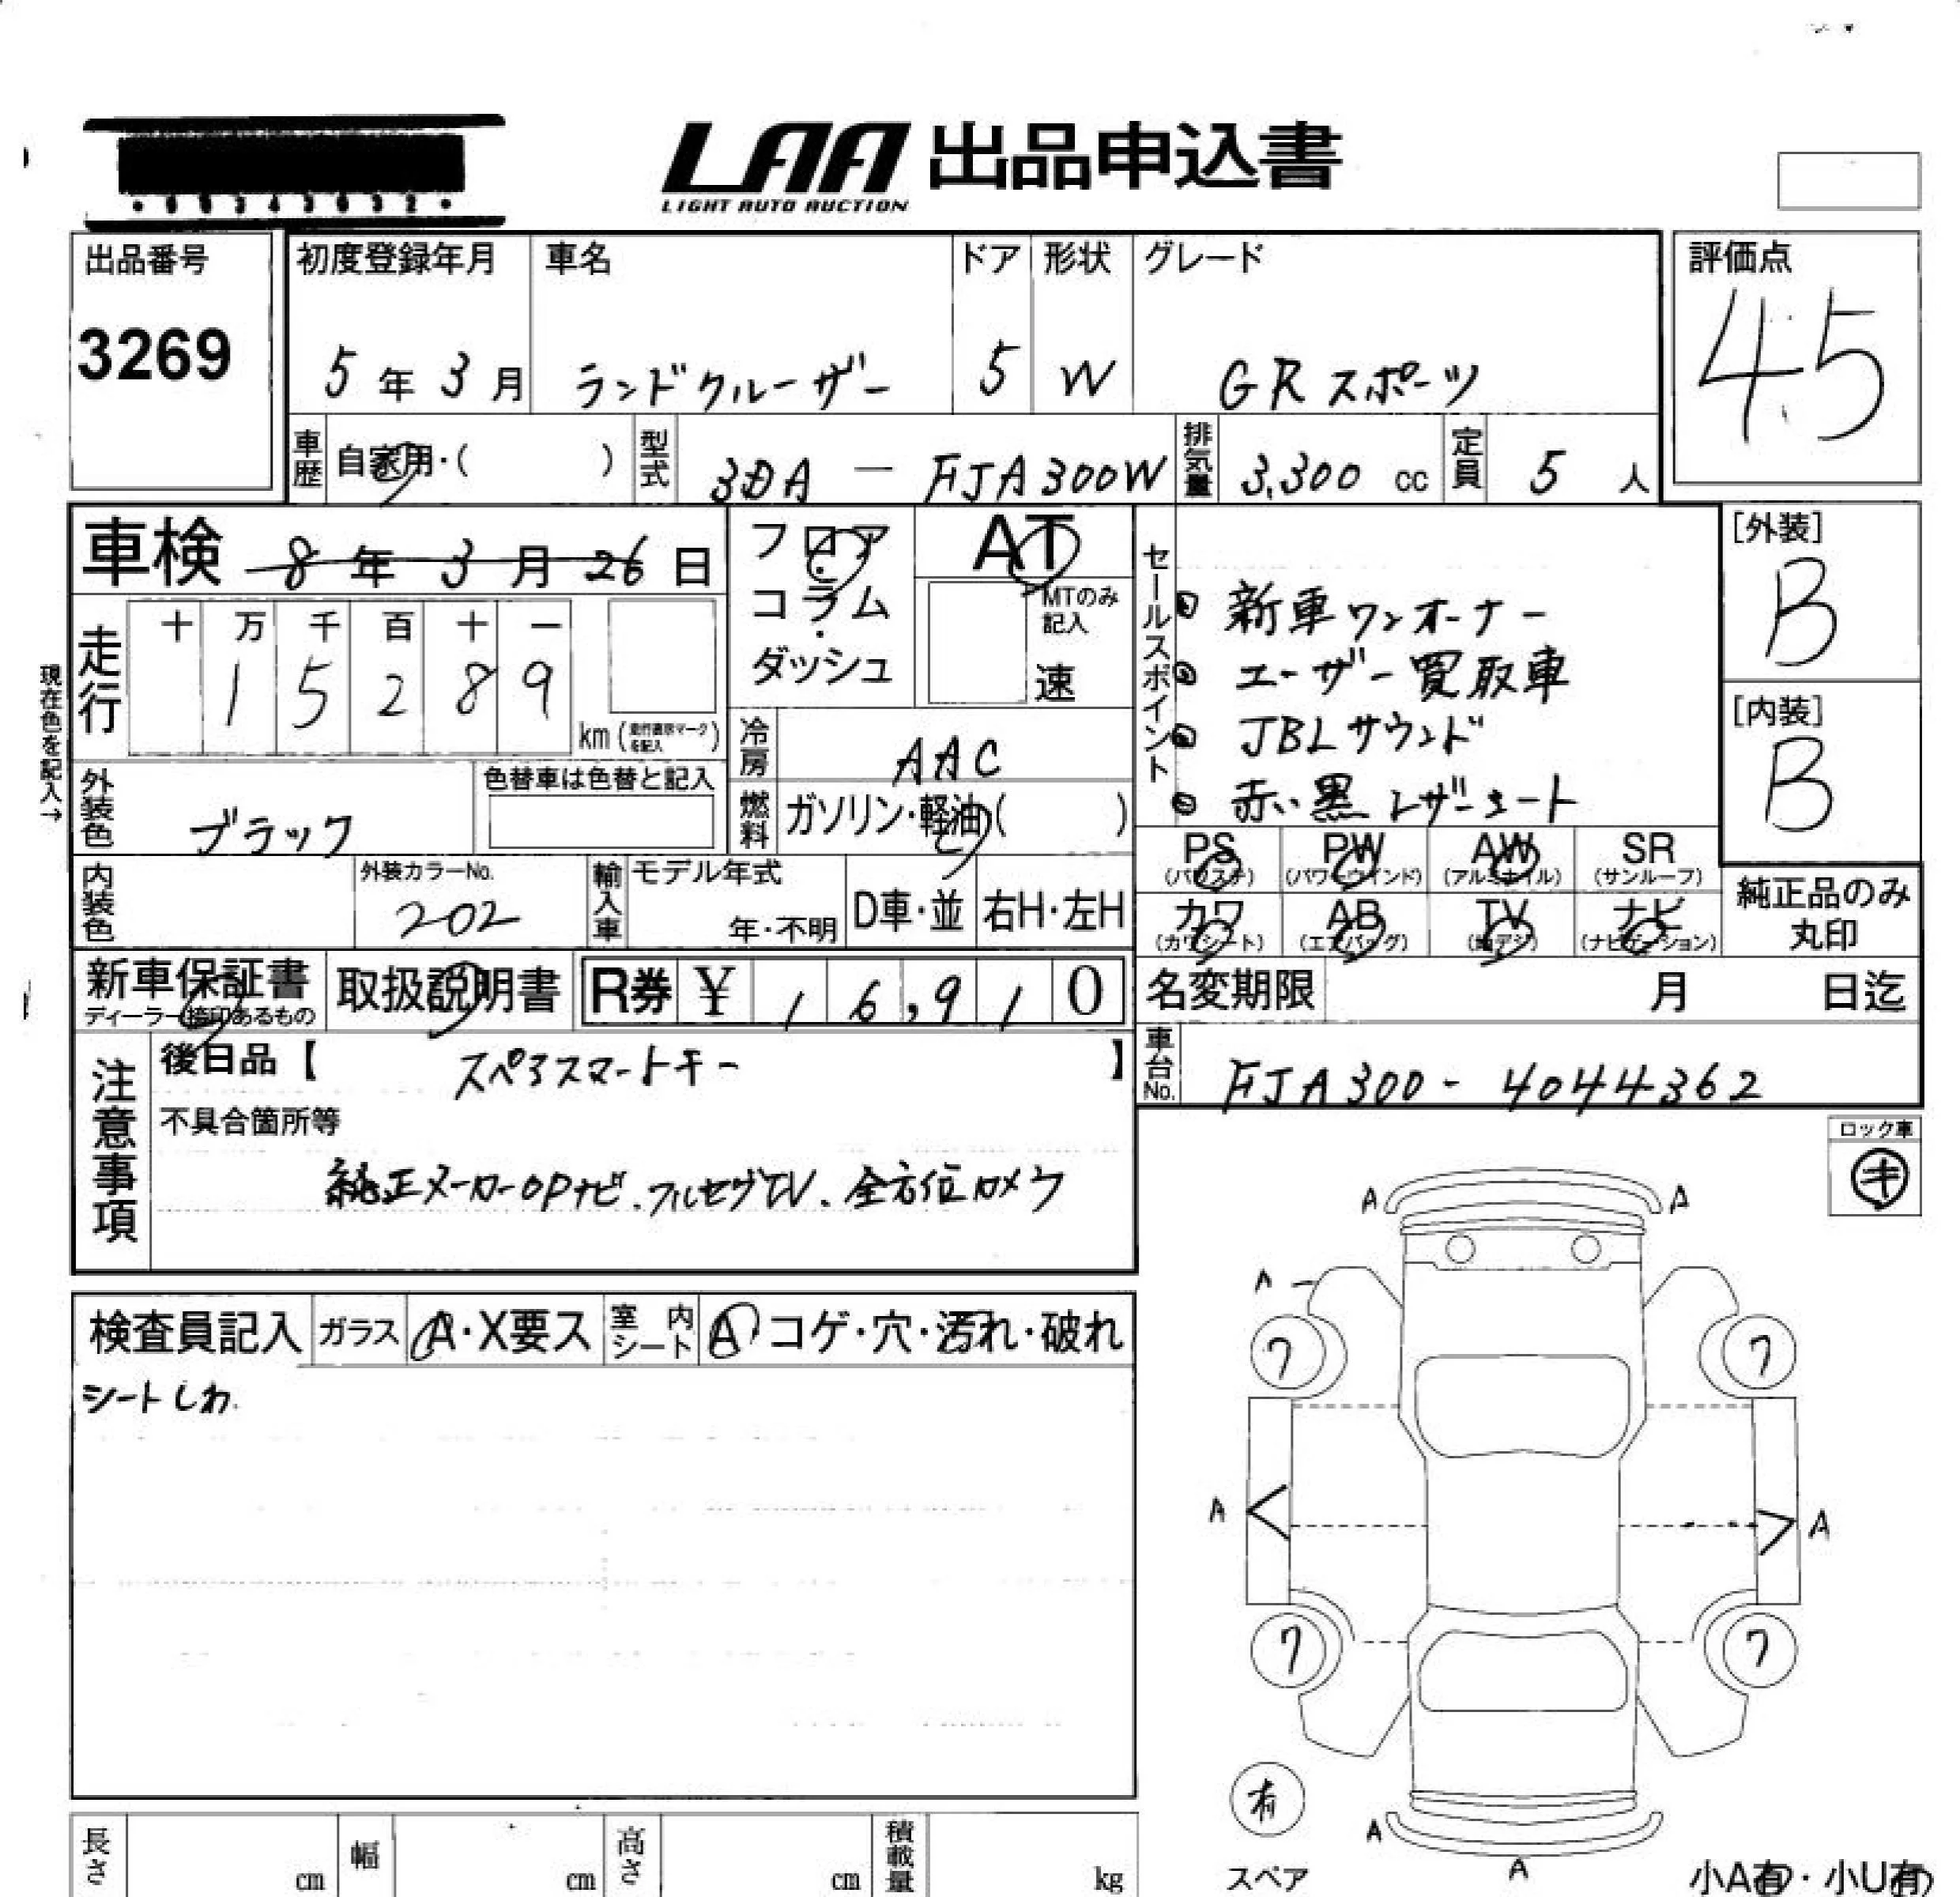 LAA 出品申込書
LIGHT AUTO AUCTION
出品番号
3269
初度登録年月
5年3月
車名
ランドクルーザー
ドア
5
形状
W
グレード
GRスポーツ
評価点
4.5
車歴 自家用・( )
型式 3DA - FJA300W
排気量 3,300 cc
定員 5 人
車検 8年3月26日
フロア・コラム・ダッシュ
AT
MTのみ記入
速
セールスポイント
新車ワンオーナー
ユーザー買取車
JBLサウンド
赤い黒レザーシート
[外装]
B
[内装]
B
現在色を記入→
走行
十 万 千 百 十 一
1 5 2 8 9
km
冷房 AAC
燃料 ガソリン・軽油( )
外装色 ブラック
色替車は色替と記入
内装色
外装カラーNo.
202
輸入車
モデル年式
年・不明
D車・並
右H・左H
PS (パワステ)
PW (パワーウインド)
AW (アルミホイル)
SR (サンルーフ)
カワ (カワシート)
AB (エアバッグ)
TV (地デジ)
ナビ (ナビゲーション)
純正品のみ
丸印
新車保証書
ディーラー捺印あるもの
取扱説明書
R券 ¥ 16,910
名変期限 月 日迄
車台No. FJA300-4044362
注意事項
後日品【 スペアスマートキー 】
不具合箇所等
純正メーカーOPナビ、フルセグTV、全方位カメラ
ロック車
キ
検査員記入
ガラス A・X要ス
室内シート A コゲ・穴・汚れ・破れ
シートしわ
A A
A
7 7
A A
7 7
有
スペア
A
A
小A有・小U有
長さ cm
幅 cm
高さ cm
積載量 kg